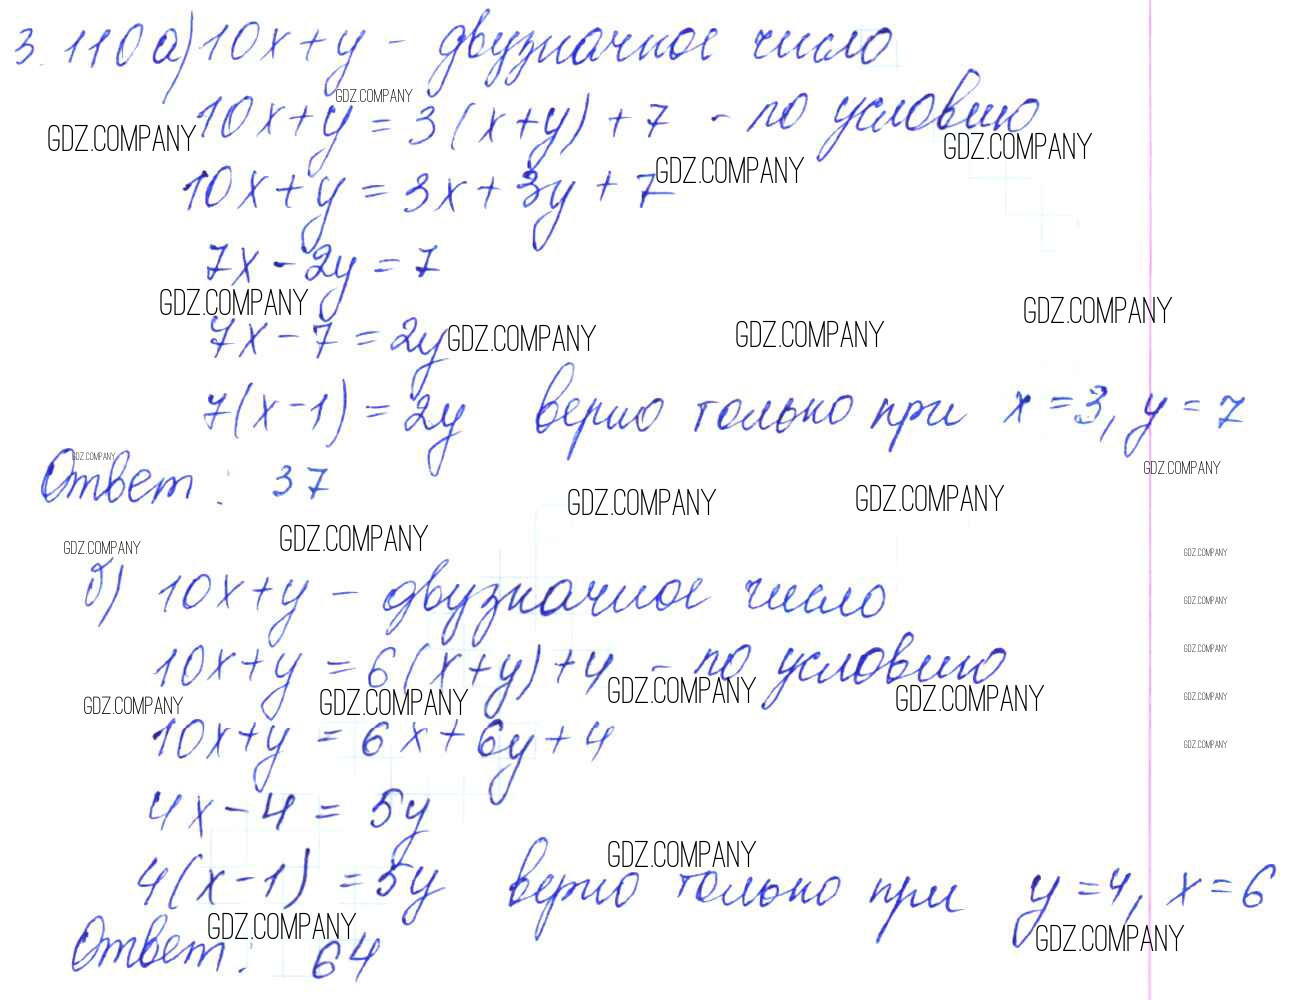 3.110 а) 10x+y - двузначное число
GDZ.COMPANY
10x+y = 3(x+y)+7 - по условию
GDZ.COMPANY
GDZ.COMPANY
GDZ.COMPANY
10x+y = 3x+3y+7
7x-2y = 7
GDZ.COMPANY
GDZ.COMPANY
7x-7 = 2y
GDZ.COMPANY
GDZ.COMPANY
7(x-1) = 2y верно только при x=3, y=7
GDZ.COMPANY
GDZ.COMPANY
Ответ: 37
GDZ.COMPANY
GDZ.COMPANY
GDZ.COMPANY
GDZ.COMPANY
GDZ.COMPANY
б) 10x+y - двузначное число
GDZ.COMPANY
GDZ.COMPANY
10x+y = 6(x+y)+4 - по условию
GDZ.COMPANY
GDZ.COMPANY
GDZ.COMPANY
GDZ.COMPANY
GDZ.COMPANY
10x+y = 6x+6y+4
GDZ.COMPANY
4x-4 = 5y
GDZ.COMPANY
4(x-1) = 5y верно только при y=4, x=6
GDZ.COMPANY
GDZ.COMPANY
Ответ: 64